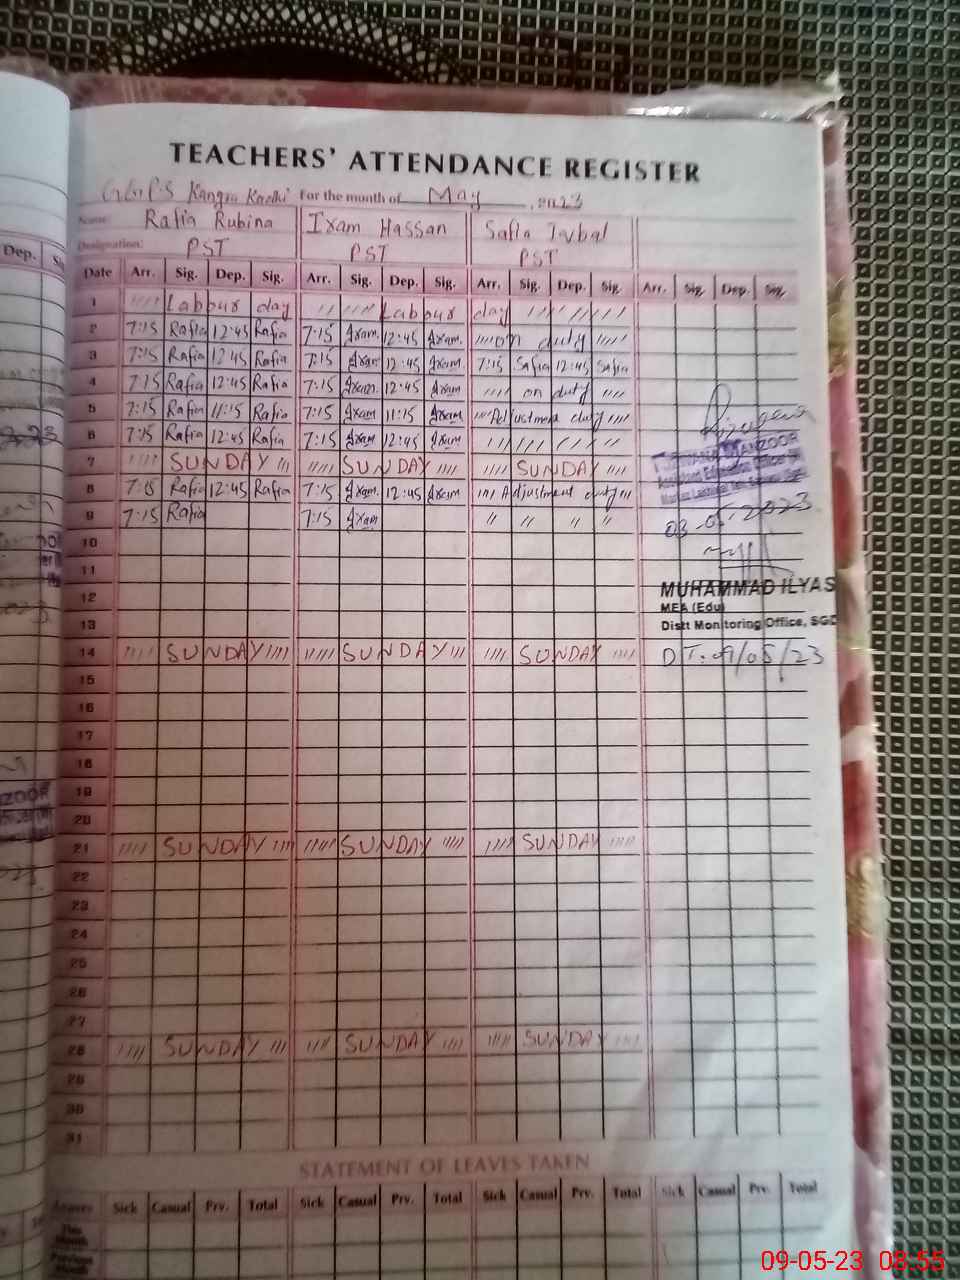 TEACHERS' ATTENDANCE REGISTER
G.G.P.S Kangra Kachi For the month of May, 2023
Name: Rafia Rubina Ixam Hassan Safia Iqbal
Designation: PST PST PST
Date Arr. Sig. Dep. Sig. Arr. Sig. Dep. Sig. Arr. Sig. Dep. Sig. Arr. Sig. Dep. Sig.
1 //// Labour day // //// Labour day //////
2 7:15 Rafia 12:45 Rafia 7:15 Ixam 12:45 Ixam //// on duty ////
3 7:15 Rafia 12:45 Rafia 7:15 Ixam 12:45 Ixam 7:15 Safia 12:45 Safia
4 7:15 Rafia 12:45 Rafia 7:15 Ixam 12:45 Ixam //// on duty ////
5 7:15 Rafia 11:15 Rafia 7:15 Ixam 11:15 Ixam /// Adjustment duty ////
6 7:15 Rafia 12:45 Rafia 7:15 Ixam 12:45 Ixam ////////
7 //// SUNDAY /// ///// SUNDAY //// //// SUNDAY ////
8 7:15 Rafia 12:45 Rafia 7:15 Ixam 12:45 Ixam /// Adjustment duty ///
9 7:15 Rafia 7:15 Ixam // // // //
MANZOOR
Assistant Education Officer
03-05-2023
10
11
12
13
MUHAMMAD ILYAS
MEA (Edu)
Distt Monitoring Office, SGD
DT: 09/05/23
14 //// SUNDAY //// ///// SUNDAY /// //// SUNDAY ////
15
16
17
18
19
20
21 //// SUNDAY //// ///// SUNDAY //// //// SUNDAY ////
22
23
24
25
26
27
28 //// SUNDAY /// //// SUNDAY //// //// SUNDAY ////
29
30
31
STATEMENT OF LEAVES TAKEN
Leaves Sick Casual Prv. Total Sick Casual Prv. Total Sick Casual Prv. Total Sick Casual Prv. Total
This Month
Previous Month
09-05-23 08:55